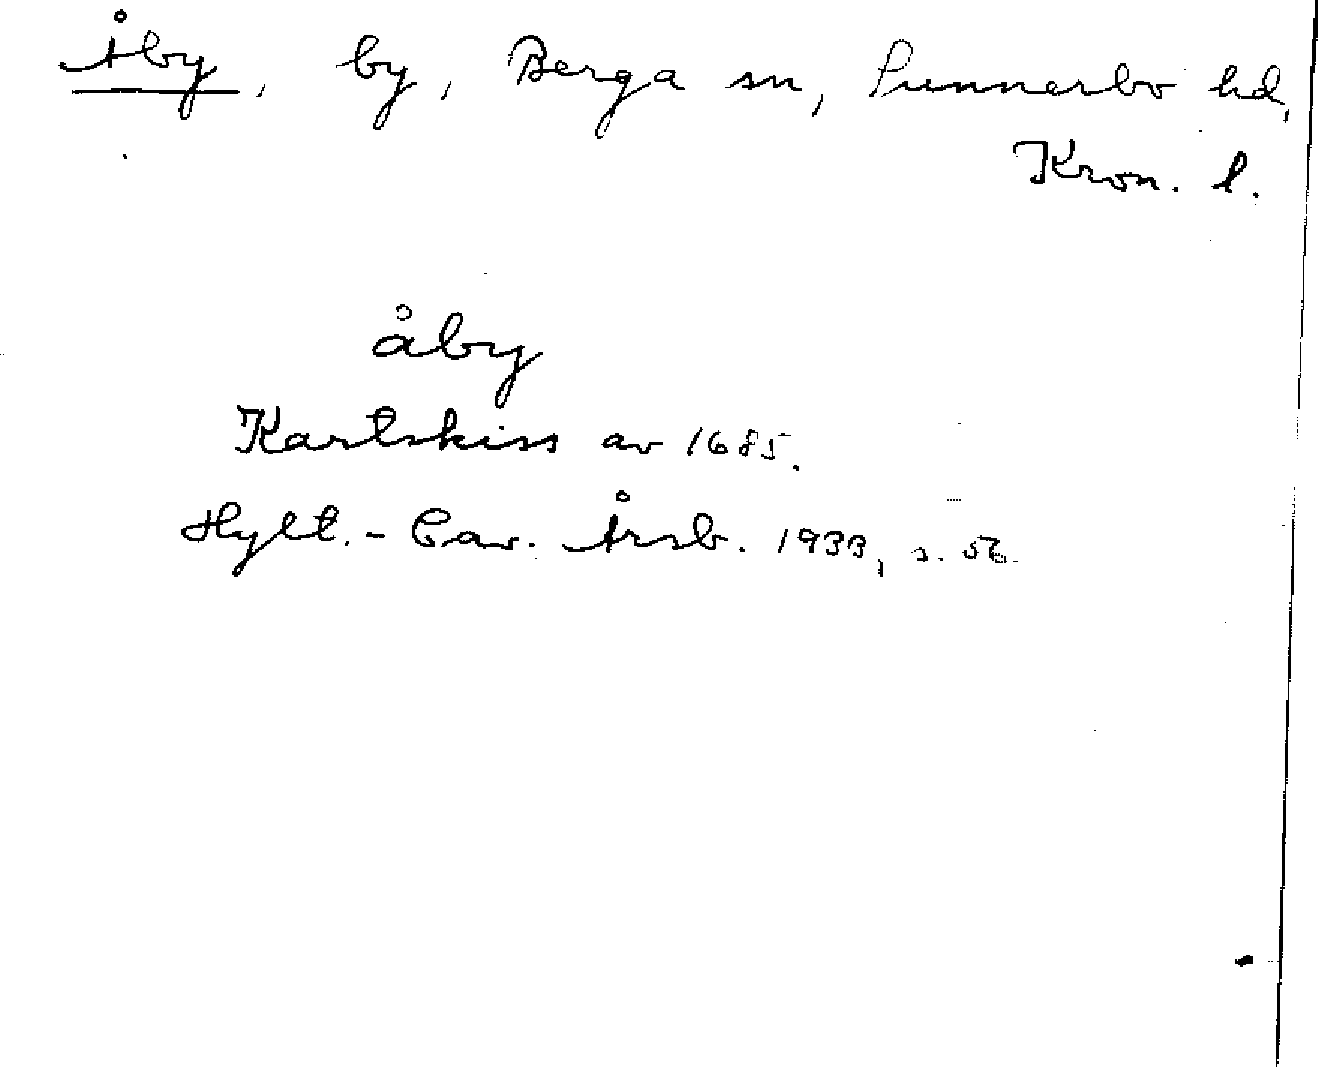 Åby, by, Berga sn, Sunnerbo hd,
Kron. l.
åby
Kartskiss av 1685.
Hylt.-Cav. Årsb. 1933, s. 56.